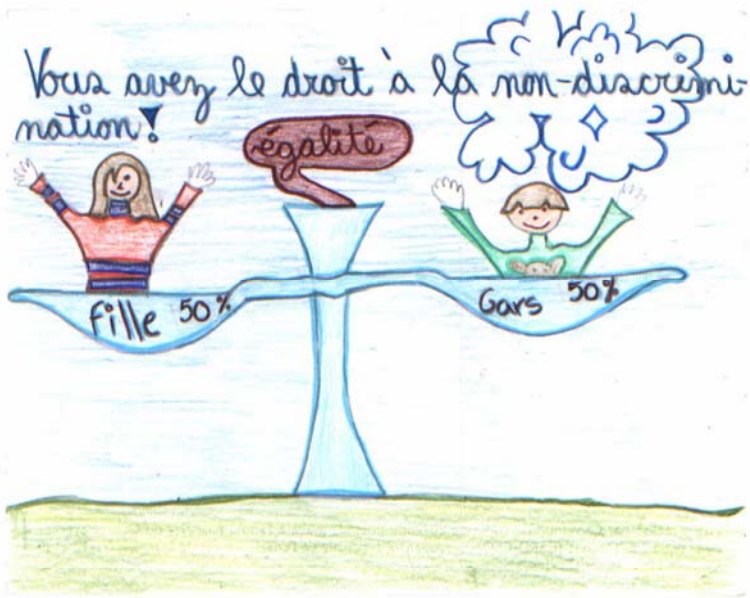 Vous avez le droit à la non-discrimi-
nation!
égalité
fille 50%
Gars 50%